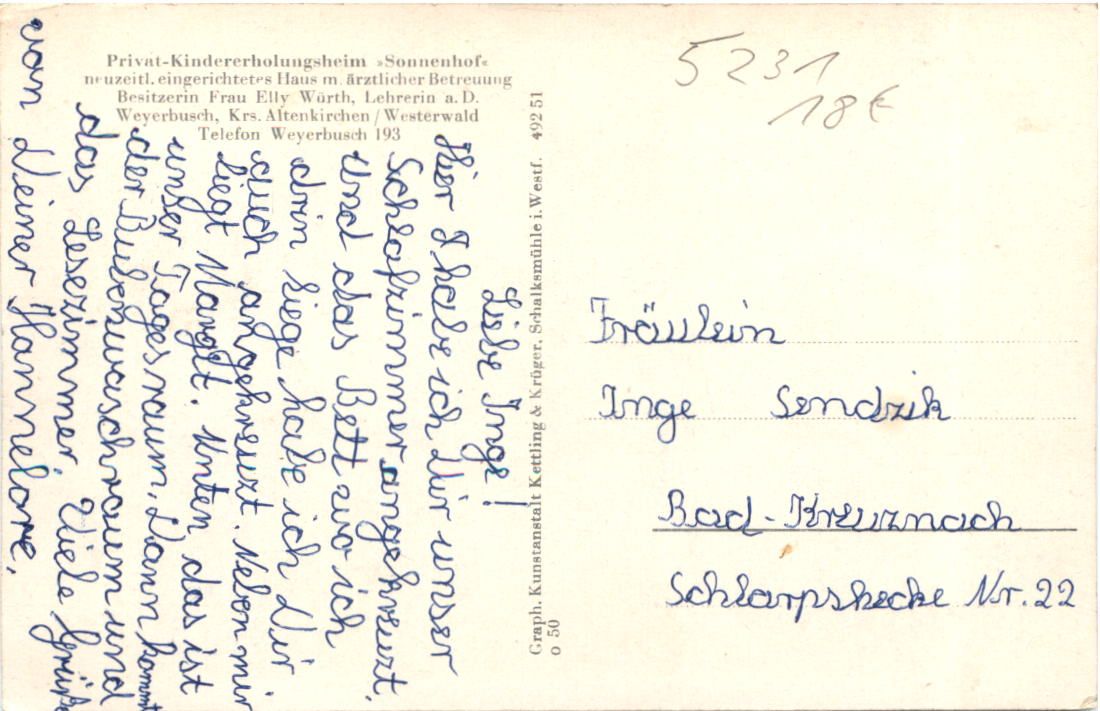 Privat-Kindererholungsheim »Sonnenhof«
neuzeitl. eingerichtetes Haus m. ärztlicher Betreuung
Besitzerin Frau Elly Würth, Lehrerin a. D.
Weyerbusch, Krs. Altenkirchen / Westerwald
Telefon Weyerbusch 193
Liebe Inge!
Hier I habe ich Dir unser
Schlafzimmer angekreuzt.
Und das Bett wo ich
drin liege habe ich Dir
auch angekreuzt. Neben mir
liegt Margit. Unten das ist
unser Tagesraum. Dann kommt
der Bubenwaschraum und
das Lesezimmer. Viele Grüße
von Deiner Hannelore.
Graph. Kunstanstalt Kettling & Krüger, Schalksmühle i. Westf. 49251
o 50
5231
18€
Fräulein
Inge Sendzik
Bad-Kreuznach
Schlarpshecke Nr. 22